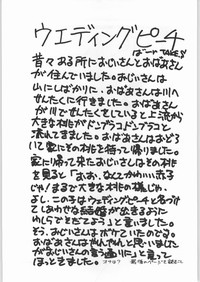 ウエディングピーチ
ばーい TAKE.S
昔々ある所におじいさんとおばあさん
が住んでいました。おじいさんは
山にしばかりに、おばあさんは川へ
せんたくに行きました。おばあさん
が川でせんたくをしていると上流から
大きな桃がドンブラコドンブラコと
流れてきました。おばあさんはおどろ
いて家にその桃を持って帰りました。
家に帰って来たおじいさんはその桃
を見ると「おお、なんてかわいい赤子
じゃ「まるで大きな桃の様じゃ。
よし、この子はウエディングピーチと名づけ
てしあわせな結婚が出来るように
わしらでそだてよう」と言いました。
そう、おじいさんはボケていたのである。
おばあさんはやれやれと思いました
がおじいさんの言う通りに」と言って
ほっときました。